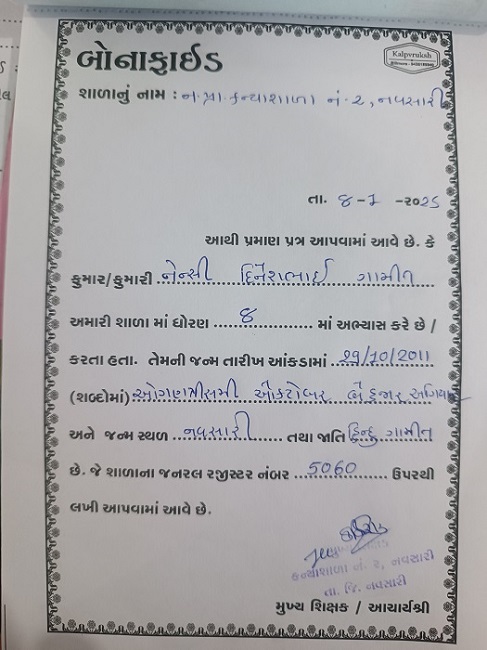 બોનાફાઈડ
Kalpvruksh
શાળાનું નામ : ન.પ્રા.કન્યાશાળા નં-૨, નવસારી
તા. ૪-૧ -૨૦૨૬
આથી પ્રમાણ પત્ર આપવામાં આવે છે. કે
કુમાર/કુમારી નેન્સી દિનેશભાઈ ગામીત
અમારી શાળા માં ધોરણ ૪ માં અભ્યાસ કરે છે /
કરતા હતા. તેમની જન્મ તારીખ આંકડામાં 29/10/2011
(શબ્દોમાં) ઓગણત્રીસમી ઓક્ટોબર બે હજાર અગિયાર
અને જન્મ સ્થળ નવસારી તથા જાતિ હિન્દુ ગામીત
છે. જે શાળાના જનરલ રજીસ્ટર નંબર 5060 ઉપરથી
લખી આપવામાં આવે છે.
કન્યાશાળા નં. ૨, નવસારી
તા. જિ. નવસારી
મુખ્ય શિક્ષક / આચાર્યશ્રી